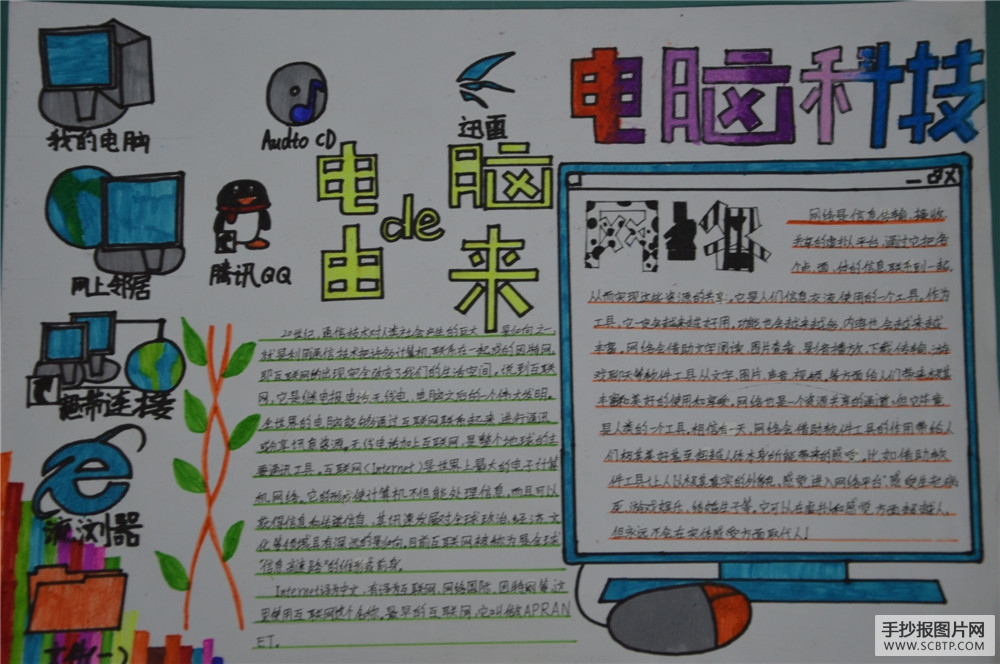 我的电脑
Audto CD
迅雷
电脑科技
电脑
de
由来
网上邻居
腾讯QQ
宽带连接
浏览器
文件(一)
网上冲浪
20世纪,通信技术对人类社会产生的巨大影响之一,
就是利用通信技术把许多计算机联系在一起形成的因特网,
即互联网的出现完全改变了我们的生活空间,说到互联
网,它是继电报、电话、无线电、电脑之后的一个伟大发明。
全世界的电脑能够通过互联网联系起来,进行通讯
或分享讯息资源。无线电话加上互联网,是整个地球的主
要通讯工具。互联网(Internet)是世界上最大的电子计算
机网络。它的形成使计算机不但能处理信息,而且可以
获得信息和传递信息,其迅速发展对全球政治、经济、文
化等领域具有深远的影响,目前互联网被称为是全球
"信息高速路"的雏形或前身。
Internet译为中文,有译为互联网、网络国际、因特网等,这
里使用互联网这个名称。最早的互联网,它叫做APRAN
ET.
网络是信息传输、接收、
共享的虚拟平台,通过它把各
个点、面、体的信息联系到一起,
从而实现这些资源的共享。它是人们信息交流、使用的一个工具。作为
工具,它一定会越来越好用。功能也会越来越多,内容也会越来越
丰富。网络会借助文字阅读、图片查看、影音播放、下载传输、游
戏、聊天等软件工具从文字、图片、声音、视频等方面给人们带来极其
丰富和美好的使用和享受。网络也是一个资源共享的通道,但它毕竟
是人类的一个工具,相信有一天,网络会借助软件工具的作用带给人
们极其美好甚至超越人体本身所能带来的感受。比如借助软
件工具让人以极其真实的外貌,感觉进入网络平台,感受生老病
死、游戏娱乐、结婚生子等,它可以在意识和感觉方面超越人,
但永远不会在实体感觉方面取代人!
手抄报图片网
WWW.SCBTP.COM